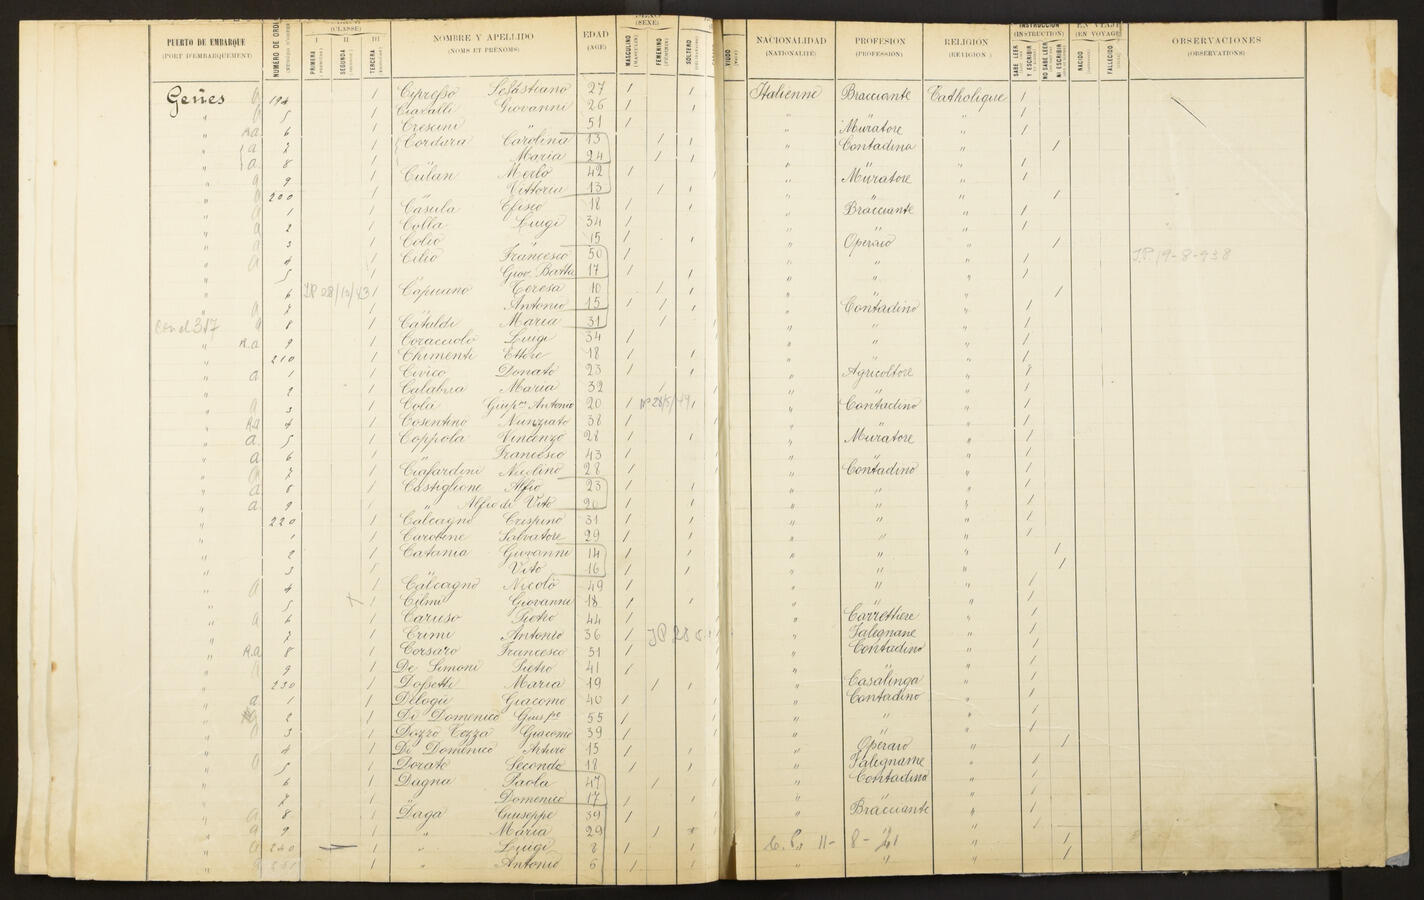 PUERTO DE EMBARQUE
(PORT D'EMBARQUEMENT)
NÚMERO DE ORDEN
(CLASSE)
I II III
PRIMERA
SEGUNDA
TERCERA
NOMBRE Y APELLIDO
(NOMS ET PRÉNOMS)
EDAD
(AGE)
(SEXE)
MASCULINO
FEMENINO
SOLTERO
VIUDO
NACIONALIDAD
(NATIONALITÉ)
PROFESION
(PROFESSION)
RELIGION
(RELIGION)
INSTRUCCION
(INSTRUCTION)
SABE LEER Y ESCRIBIR
NO SABE LEER NI ESCRIBIR
EN VIAJE
(EN VOYAGE)
NACIDO
FALLECIDO
OBSERVACIONES
(OBSERVATIONS)
Gênes 194 / Cipresso Sebastiano 27 / / Italienne Bracciante Catholique /
" 5 / Ciavalli Giovanni 26 / / " " " /
" Ra 6 / Crescini " 51 / " Muratore " /
" a 7 / Cordara Carolina 13 / / " Contadina " /
" a 8 / Maria 24 / / " " " /
" 9 / Culan Merlo 42 / " Muratore " /
" 200 / " Vittoria 13 / / " " " /
" 1 / Casula Efisio 18 / / " Bracciante " /
" a 2 / Colla Luigi 34 / " " " /
" 3 / Colio " 15 / / " Operaio " /
" 4 / Cilio Francesco 50 / " " " / J.P. 19-8-938
" 5 / Giov. Batta 17 / / " " " /
" 6 JP 28/12/43 / Capuano Teresa 10 / / " " " /
" a 7 / " Antonio 15 / / " Contadino " /
Cond 317 a 8 / Cataldi Maria 31 / " " " /
" Ra 9 / Coracciolo Luigi 34 / " " " /
" 210 / Chimenti Ettore 18 / / " " " /
" a 1 / Civico Donato 23 / / " Agricoltore " /
" 2 / Calabria Maria 32 / " " " /
" a 3 / Cola Giuspe Antonio 20 / / " Contadino " /
" Ra 4 / Cosentino Nunziato 38 / " " " /
" a 5 / Coppola Vincenzo 28 / / " Muratore " /
" a 6 / " Francesco 43 / " " " /
" 7 / Ciafardini Nicolino 28 / " Contadino " /
" a 8 / Castiglione Alfio 23 / / " " " /
" a 9 / " Alfio di Vito 20 / / " " " /
" 220 / Calcagno Crispino 31 / / " " " /
" 1 / Carobine Salvatore 29 / / " " " /
" 2 / Catania Giovanni 14 / / " " " /
" 3 / " Vito 16 / / " " " /
" a 4 / Calcagno Nicolò 49 / " " " /
" 5 / Cilmi Giovanni 18 / / " " " /
" a 6 / Caruso Pietro 44 / " Carrettiere " /
" 7 / Crimi Antonio 36 / " Falegname " /
" Ra 8 / Corsaro Francesco 51 / " Contadino " /
" a 9 / De Simoni Pietro 41 / " " " /
" 230 / Dossetti Maria 19 / / " Casalinga " /
" a 1 / Delogu Giacomo 40 / " Contadino " /
" 2 / Di Domenico Giuspe 55 / " " " /
" 3 / Dozzo Tozza Giacomo 39 / " " " /
" 4 / Di Domenico Arturo 15 / / " Operaio " /
" a 5 / Dorato Secondo 18 / / " Falegname " /
" 6 / Dagna Paola 47 / " Contadina " /
" 7 / " Domenico 17 / / " " " /
" a 8 / Daga Giuseppe 39 / " Bracciante " /
" a 9 / " Maria 29 / " " " /
" a 240 / " Luigi 8 / / " /
" 241 / " Antonio 6 / / " " " /